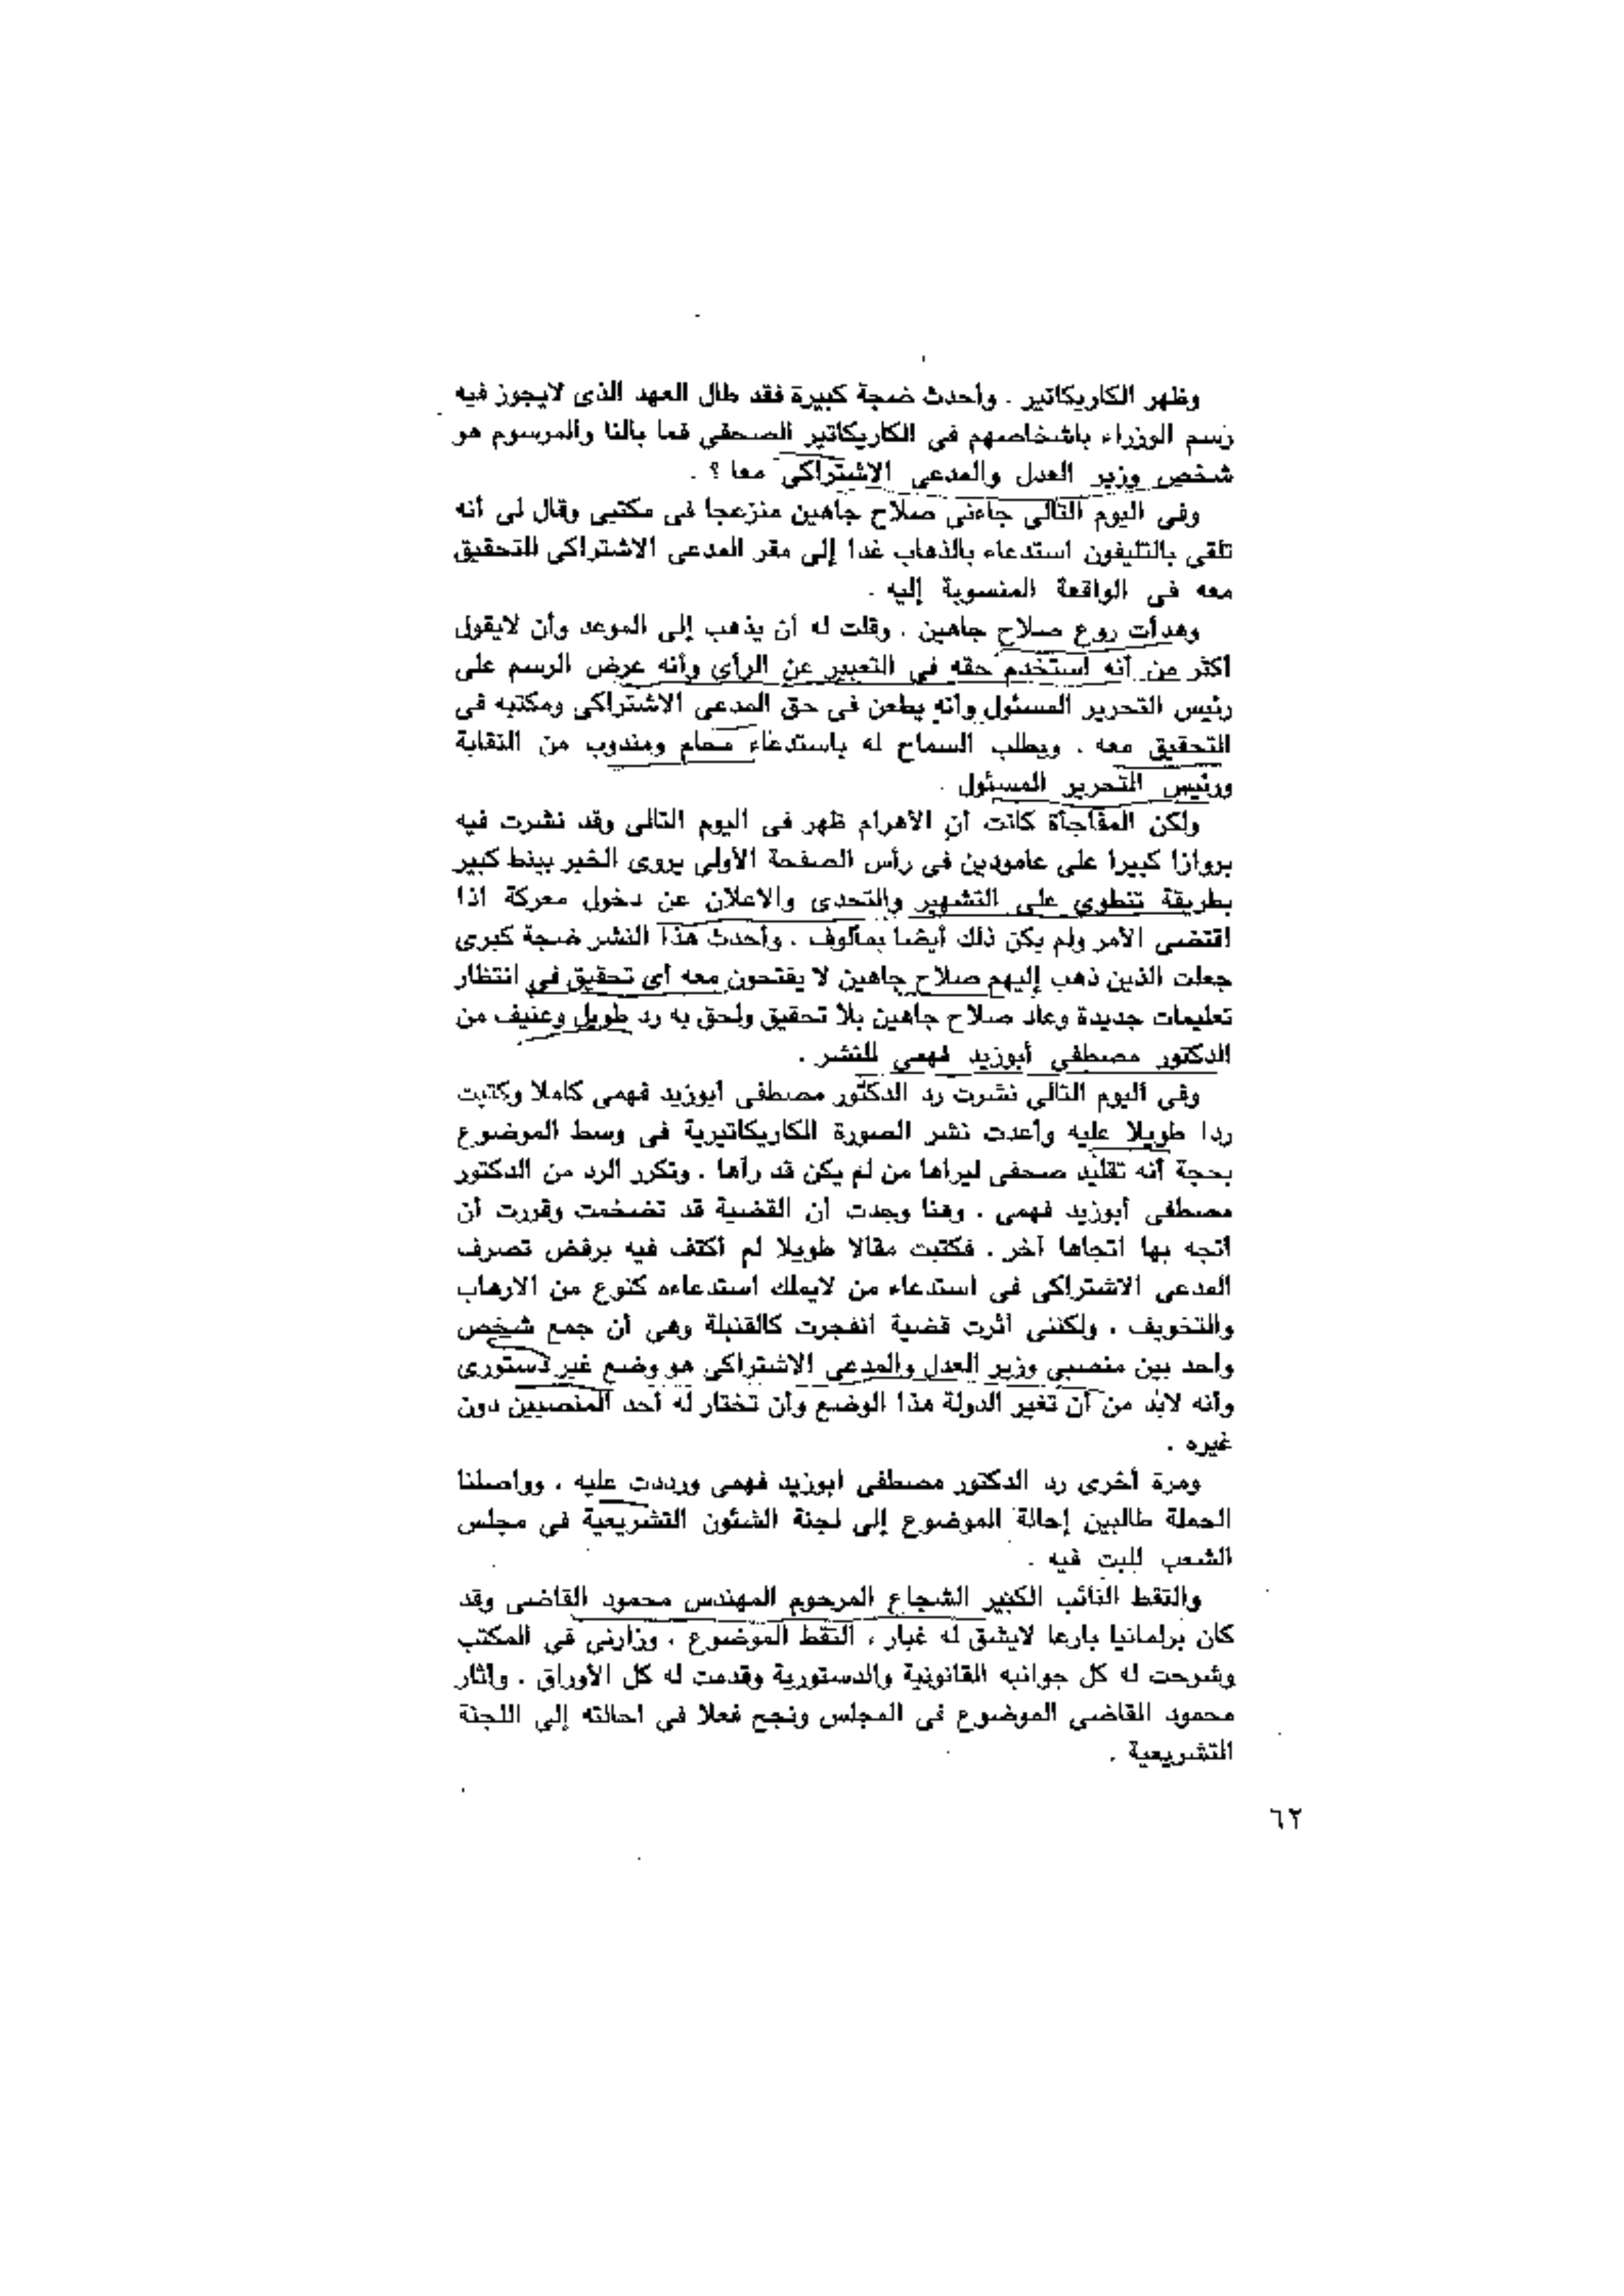 وظهر الكاريكاتير . وأحدث ضجة كبيرة فقد طال العهد الذى لايجوز فيه
رسم الوزراء باشخاصهم فى الكاريكاتير الصحفى فما بالنا والمرسوم هو
شخص وزير العدل والمدعى الاشتراكى معا ؟ .
وفى اليوم التالى جاءنى صلاح جاهين منزعجا فى مكتبى وقال لى أنه
تلقى بالتليفون استدعاء بالذهاب غدا إلى مقر المدعى الاشتراكى للتحقيق
معه فى الواقعة المنسوبة إليه .
وهدأت روع صلاح جاهين . وقلت له أن يذهب إلى الموعد وأن لايقول
أكثر من أنه استخدم حقه فى التعبير عن الرأى وأنه عرض الرسم على
رئيس التحرير المسئول وأنه يطعن فى حق المدعى الاشتراكى ومكتبه فى
التحقيق معه . ويطلب السماح له باستدعاء محام ومندوب من النقابة
ورئيس التحرير المسئول .
ولكن المفاجأة كانت أن الأهرام ظهر فى اليوم التالى وقد نشرت فيه
بروازا كبيرا على عامودين فى رأس الصفحة الأولى يروى الخبر ببنط كبير
بطريقة تنطوى على التشهير والتحدى والاعلان عن دخول معركة اذا
اقتضى الأمر ولم يكن ذلك أيضا بمألوف . وأحدث هذا النشر ضجة كبرى
جعلت الذين ذهب إليهم صلاح جاهين لا يفتحون معه أى تحقيق فى انتظار
تعليمات جديدة وعاد صلاح جاهين بلا تحقيق ولحق به رد طويل وعنيف من
الدكتور مصطفى أبوزيد فهمى للنشر .
وفى اليوم التالى نشرت رد الدكتور مصطفى ابوزيد فهمى كاملا وكتبت
ردا طويلا عليه وأعدت نشر الصورة الكاريكاتيرية فى وسط الموضوع
بحجة أنه تقليد صحفى ليراها من لم يكن قد رآها . وتكرر الرد من الدكتور
مصطفى أبوزيد فهمى . وهنا وجدت أن القضية قد تضخمت وقررت أن
أتجه بها اتجاها آخر . فكتبت مقالا طويلا لم أكتف فيه برفض تصرف
المدعى الاشتراكى فى استدعاء من لايملك استدعاءه كنوع من الارهاب
والتخويف . ولكننى أثرت قضية انفجرت كالقنبلة وهى أن جمع شخص
واحد بين منصبى وزير العدل والمدعى الاشتراكى هو وضع غير دستورى
وأنه لابد من أن تغير الدولة هذا الوضع وأن تختار له أحد المنصبين دون
غيره .
ومرة أخرى رد الدكتور مصطفى ابوزيد فهمى ورددت عليه . وواصلنا
الحملة طالبين إحالة الموضوع إلى لجنة الشئون التشريعية فى مجلس
الشعب للبت فيه .
والتقط النائب الكبير الشجاع المرحوم المهندس محمود القاضى وقد
كان برلمانيا بارعا لايشق له غبار ، التقط الموضوع . وزارنى فى المكتب
وشرحت له كل جوانبه القانونية والدستورية وقدمت له كل الأوراق . وأثار
محمود القاضى الموضوع فى المجلس ونجح فعلا فى احالته إلى اللجنة
التشريعية .
٦٢